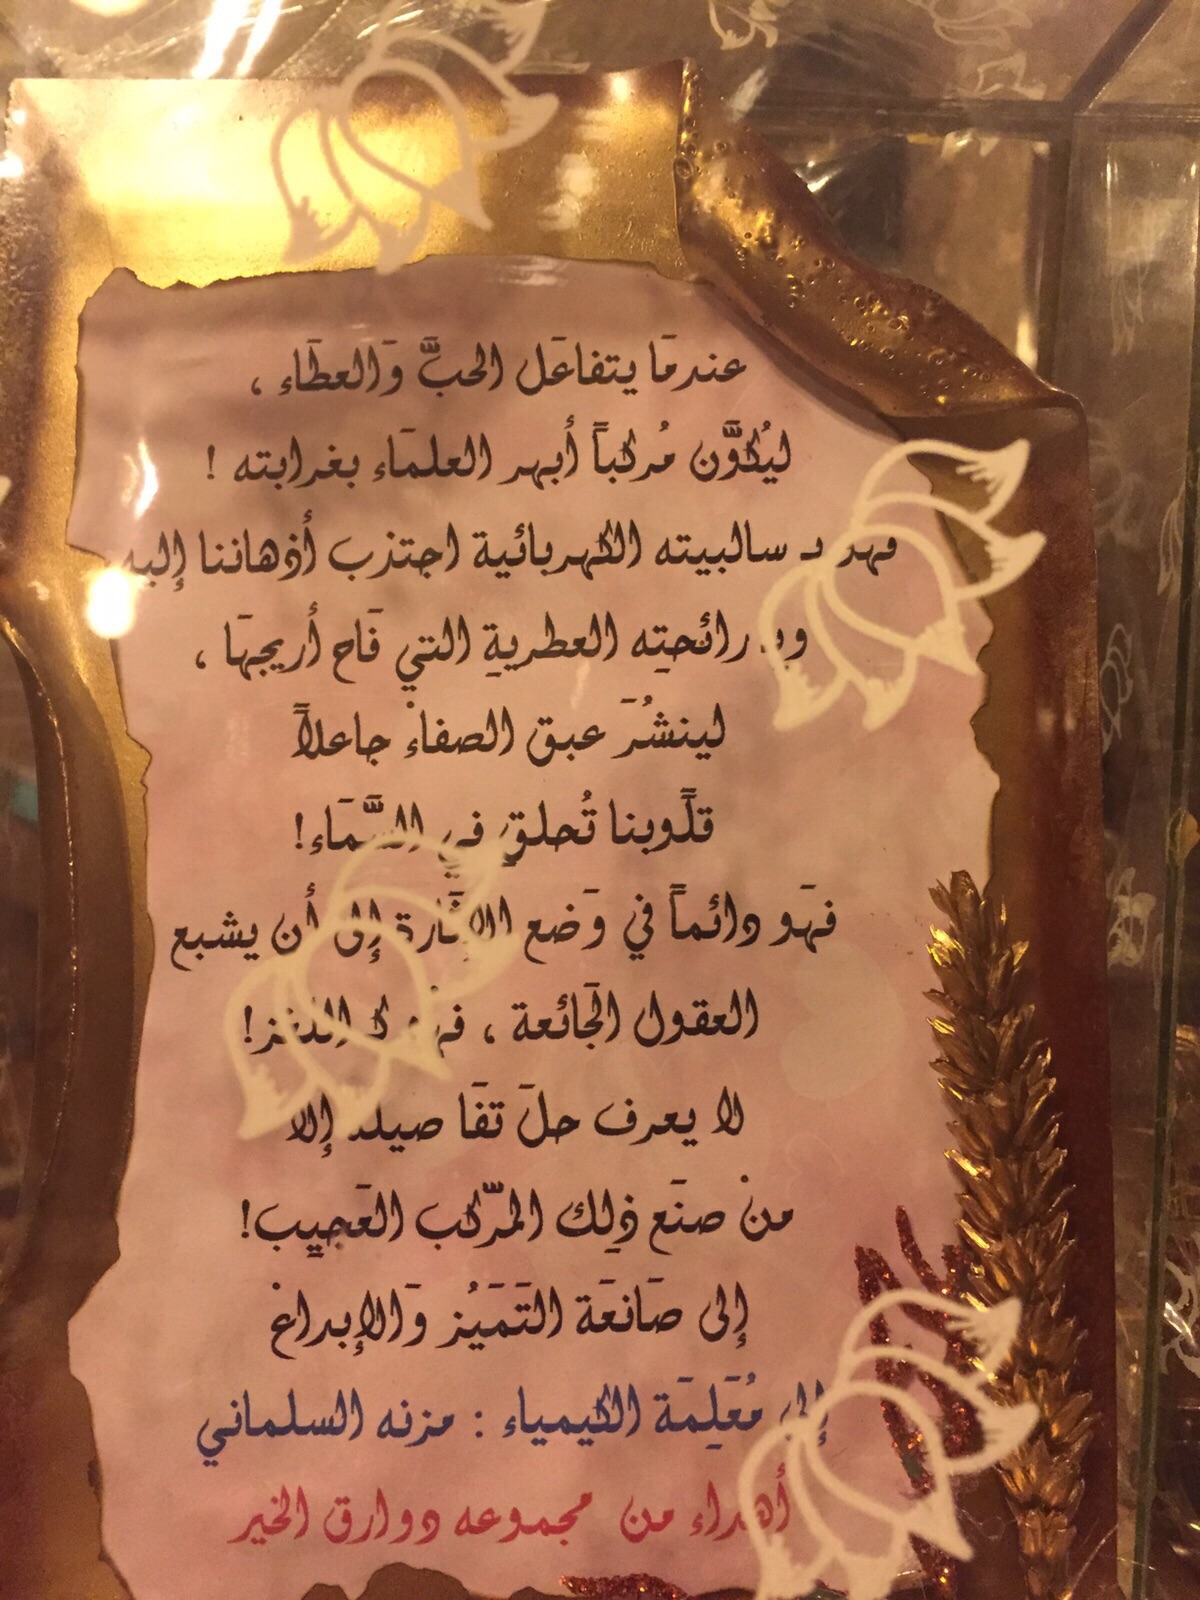 عندمَا يتفاعَل الحبَّ وَالعطَاء ،
ليُكوَّن مُركباً أبهر العلمَاء بغرابته !
فهو بـ سالبيته الكهربائية اجتذب أذهاننا إليه
وبـ رائحتِه العطريةِ التي فَاح أريجهَا ،
لينشُرَ عبق الصفاء جاعلاً
قلَوبنا تُحلق في السَّمَاء!
فهَو دائماً في وَضع الإثَارة إلى أن يشبع
العقول الجَائعة ، فهو كـ اللغز!
لا يعرف حلَ تفَا صيله إلا
من صنَع ذلِك المرّكب العَجيِب!
إلى صَانعَة التَمَيُز وَالإبداع
إلى مُعَلِمَة الكيمياء : مزنه السلماني
أهداء من مجموعه دوارق الخير